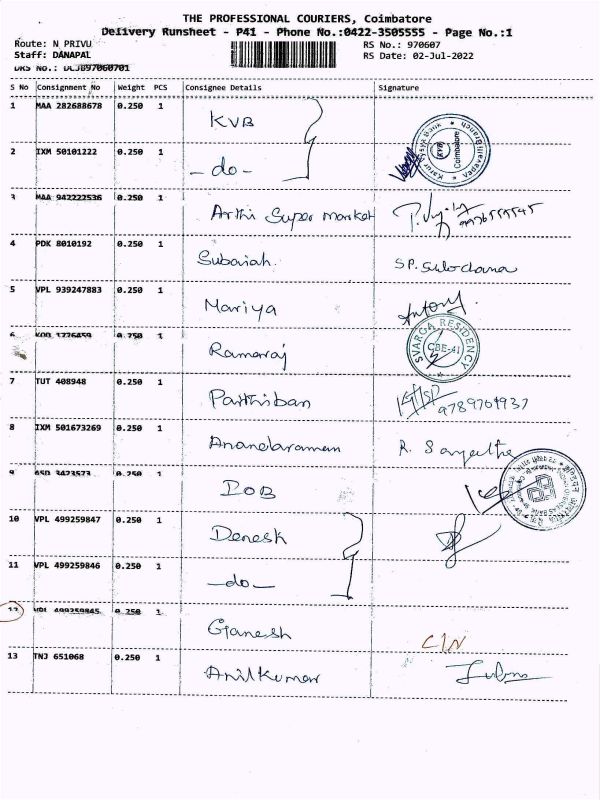 THE PROFESSIONAL COURIERS, Coimbatore
Delivery Runsheet - P41 - Phone No.:0422-3505555 - Page No.:1
Route: N PRIVU RS No.: 970607
Staff: DANAPAL RS Date: 02-Jul-2022
DRS No.: DCJB97060701
S No Consignment No Weight PCS Consignee Details Signature
1 MAA 282688678 0.250 1 KVB
Karur Vysya Bank Vadavalli Branch KVB Coimbatore
2 IXM 50101222 0.250 1 - do -
3 MAA 942222536 0.250 1 Arthi Super market
4 PDK 8010192 0.250 1 Subaiah. SP. Sulochana
5 VPL 939247883 0.250 1 Mariya Antony.
SVARGA RESIDENCY CBE-41
6 0.250 1 Ramaraj
7 TUT 408948 0.250 1 Parthiban 9789704937
8 IXM 501673269 0.250 1 Anandaraman R. Sangeetha
9 0.250 1 IOB
10 VPL 499259847 0.250 1 Denesh
11 VPL 499259846 0.250 1 - do -
12 VPL 499259845 0.250 1 Ganesh C/N
13 TNJ 651068 0.250 1 Anilkumar